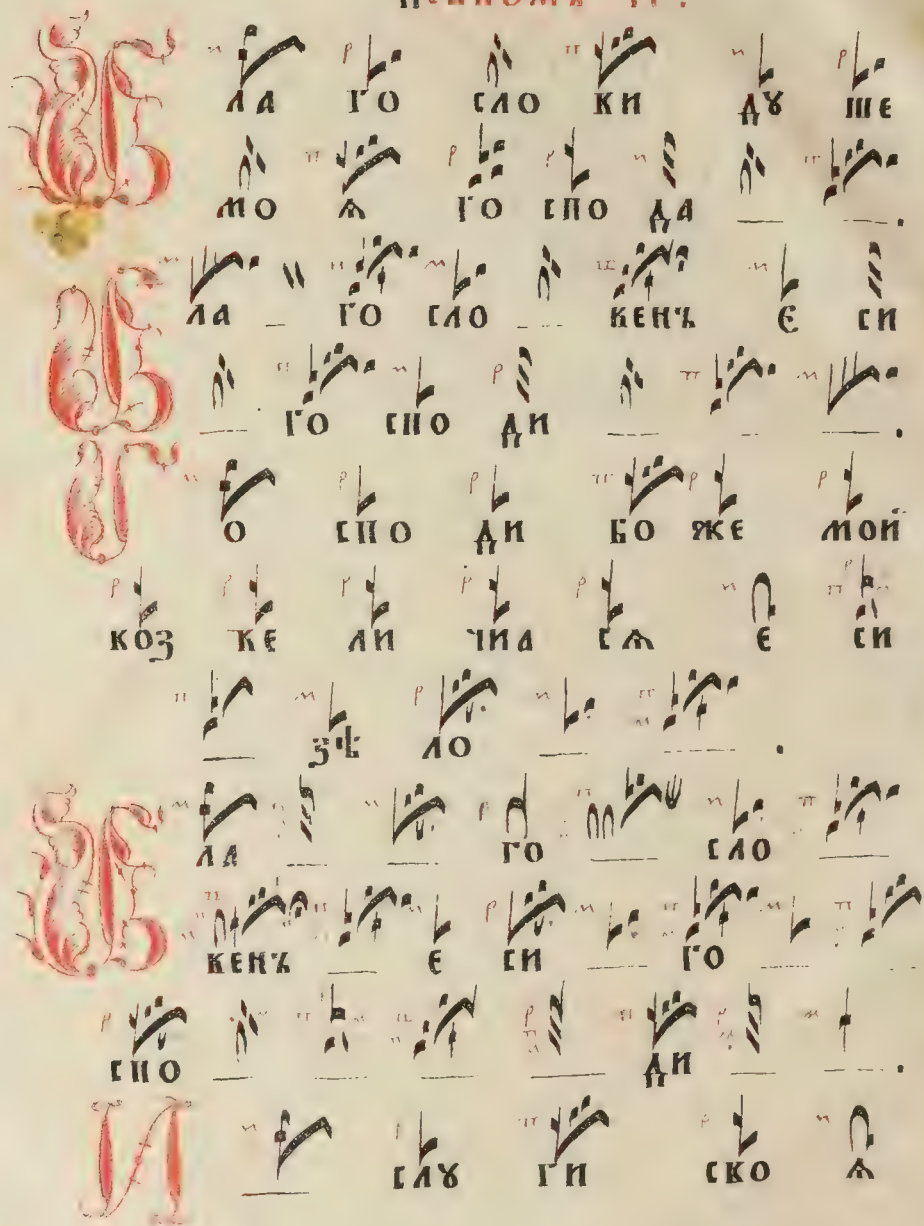 Б ЛА ГО СЛО ВИ ДꙊ ШЕ
МО Ѧ ГО СПО ДА
Б ЛА ГО СЛО ВЕНЪ Е СИ
ГО СПО ДИ
Г О СПО ДИ БО ЖЕ МОЙ
ВОЗ ВЕ ЛИ ЧИЛ СѦ Е СИ
ЗѢ ЛО
Б ЛА ГО СЛО
ВЕНЪ Е СИ ГО
СПО ДИ
И СЛꙊ ГИ СВО Ѧ